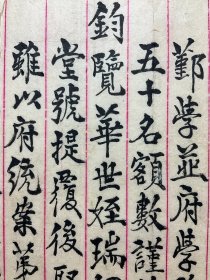 鄞學並府學
五十名額數謹
鈞覽華世姪瑞
堂號提覆後
雖以府統案第